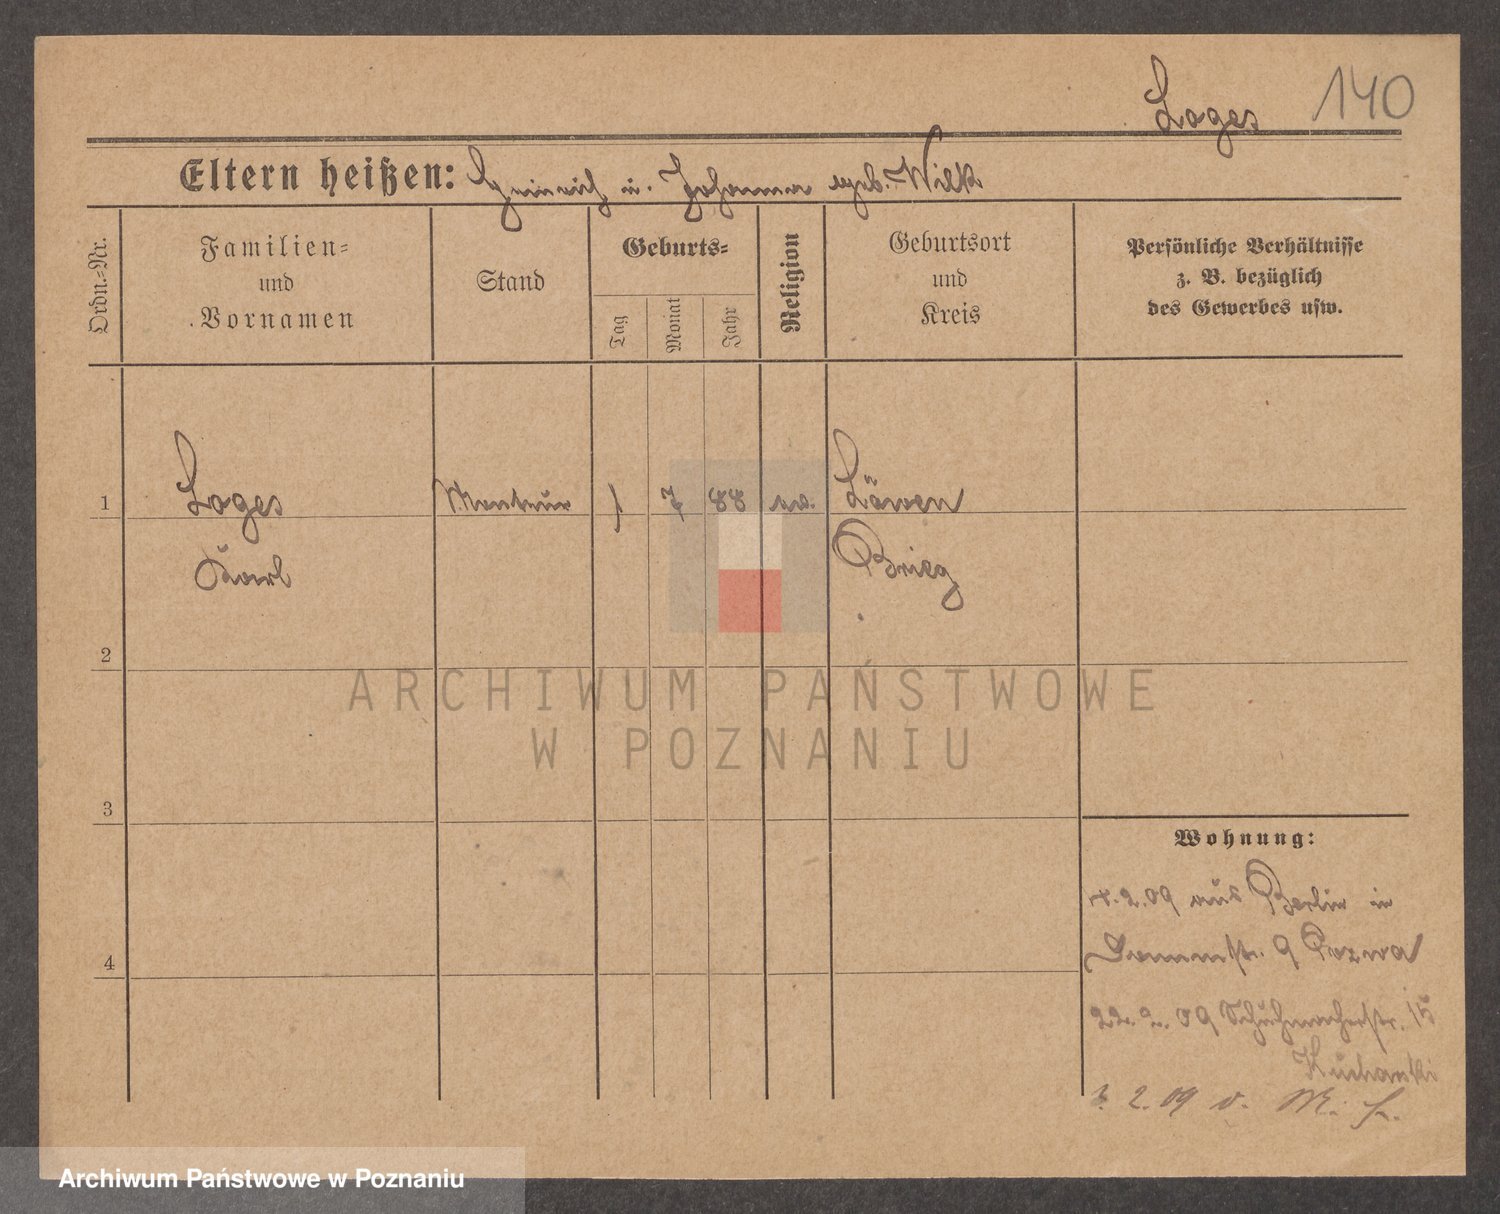 Loges 140
Eltern heißen: Heinrich u. Johanna geb. Wilk
Ordn.-Nr.
Familien-
und
Vornamen
Stand
Geburts-
Tag
Monat
Jahr
Religion
Geburtsort
und
Kreis
Persönliche Verhältnisse
z. B. bezüglich
des Gewerbes usw.
1 Loges Monteur 1 7 88 ev. Löwen
Karl Brieg
2
3
4
Wohnung:
4.2.09 aus Berlin in
9
22.2.09 Schuhmacherstr. 15
2.09 v. M. L.
ARCHIWUM PAŃSTWOWE
W POZNANIU
Archiwum Państwowe w Poznaniu